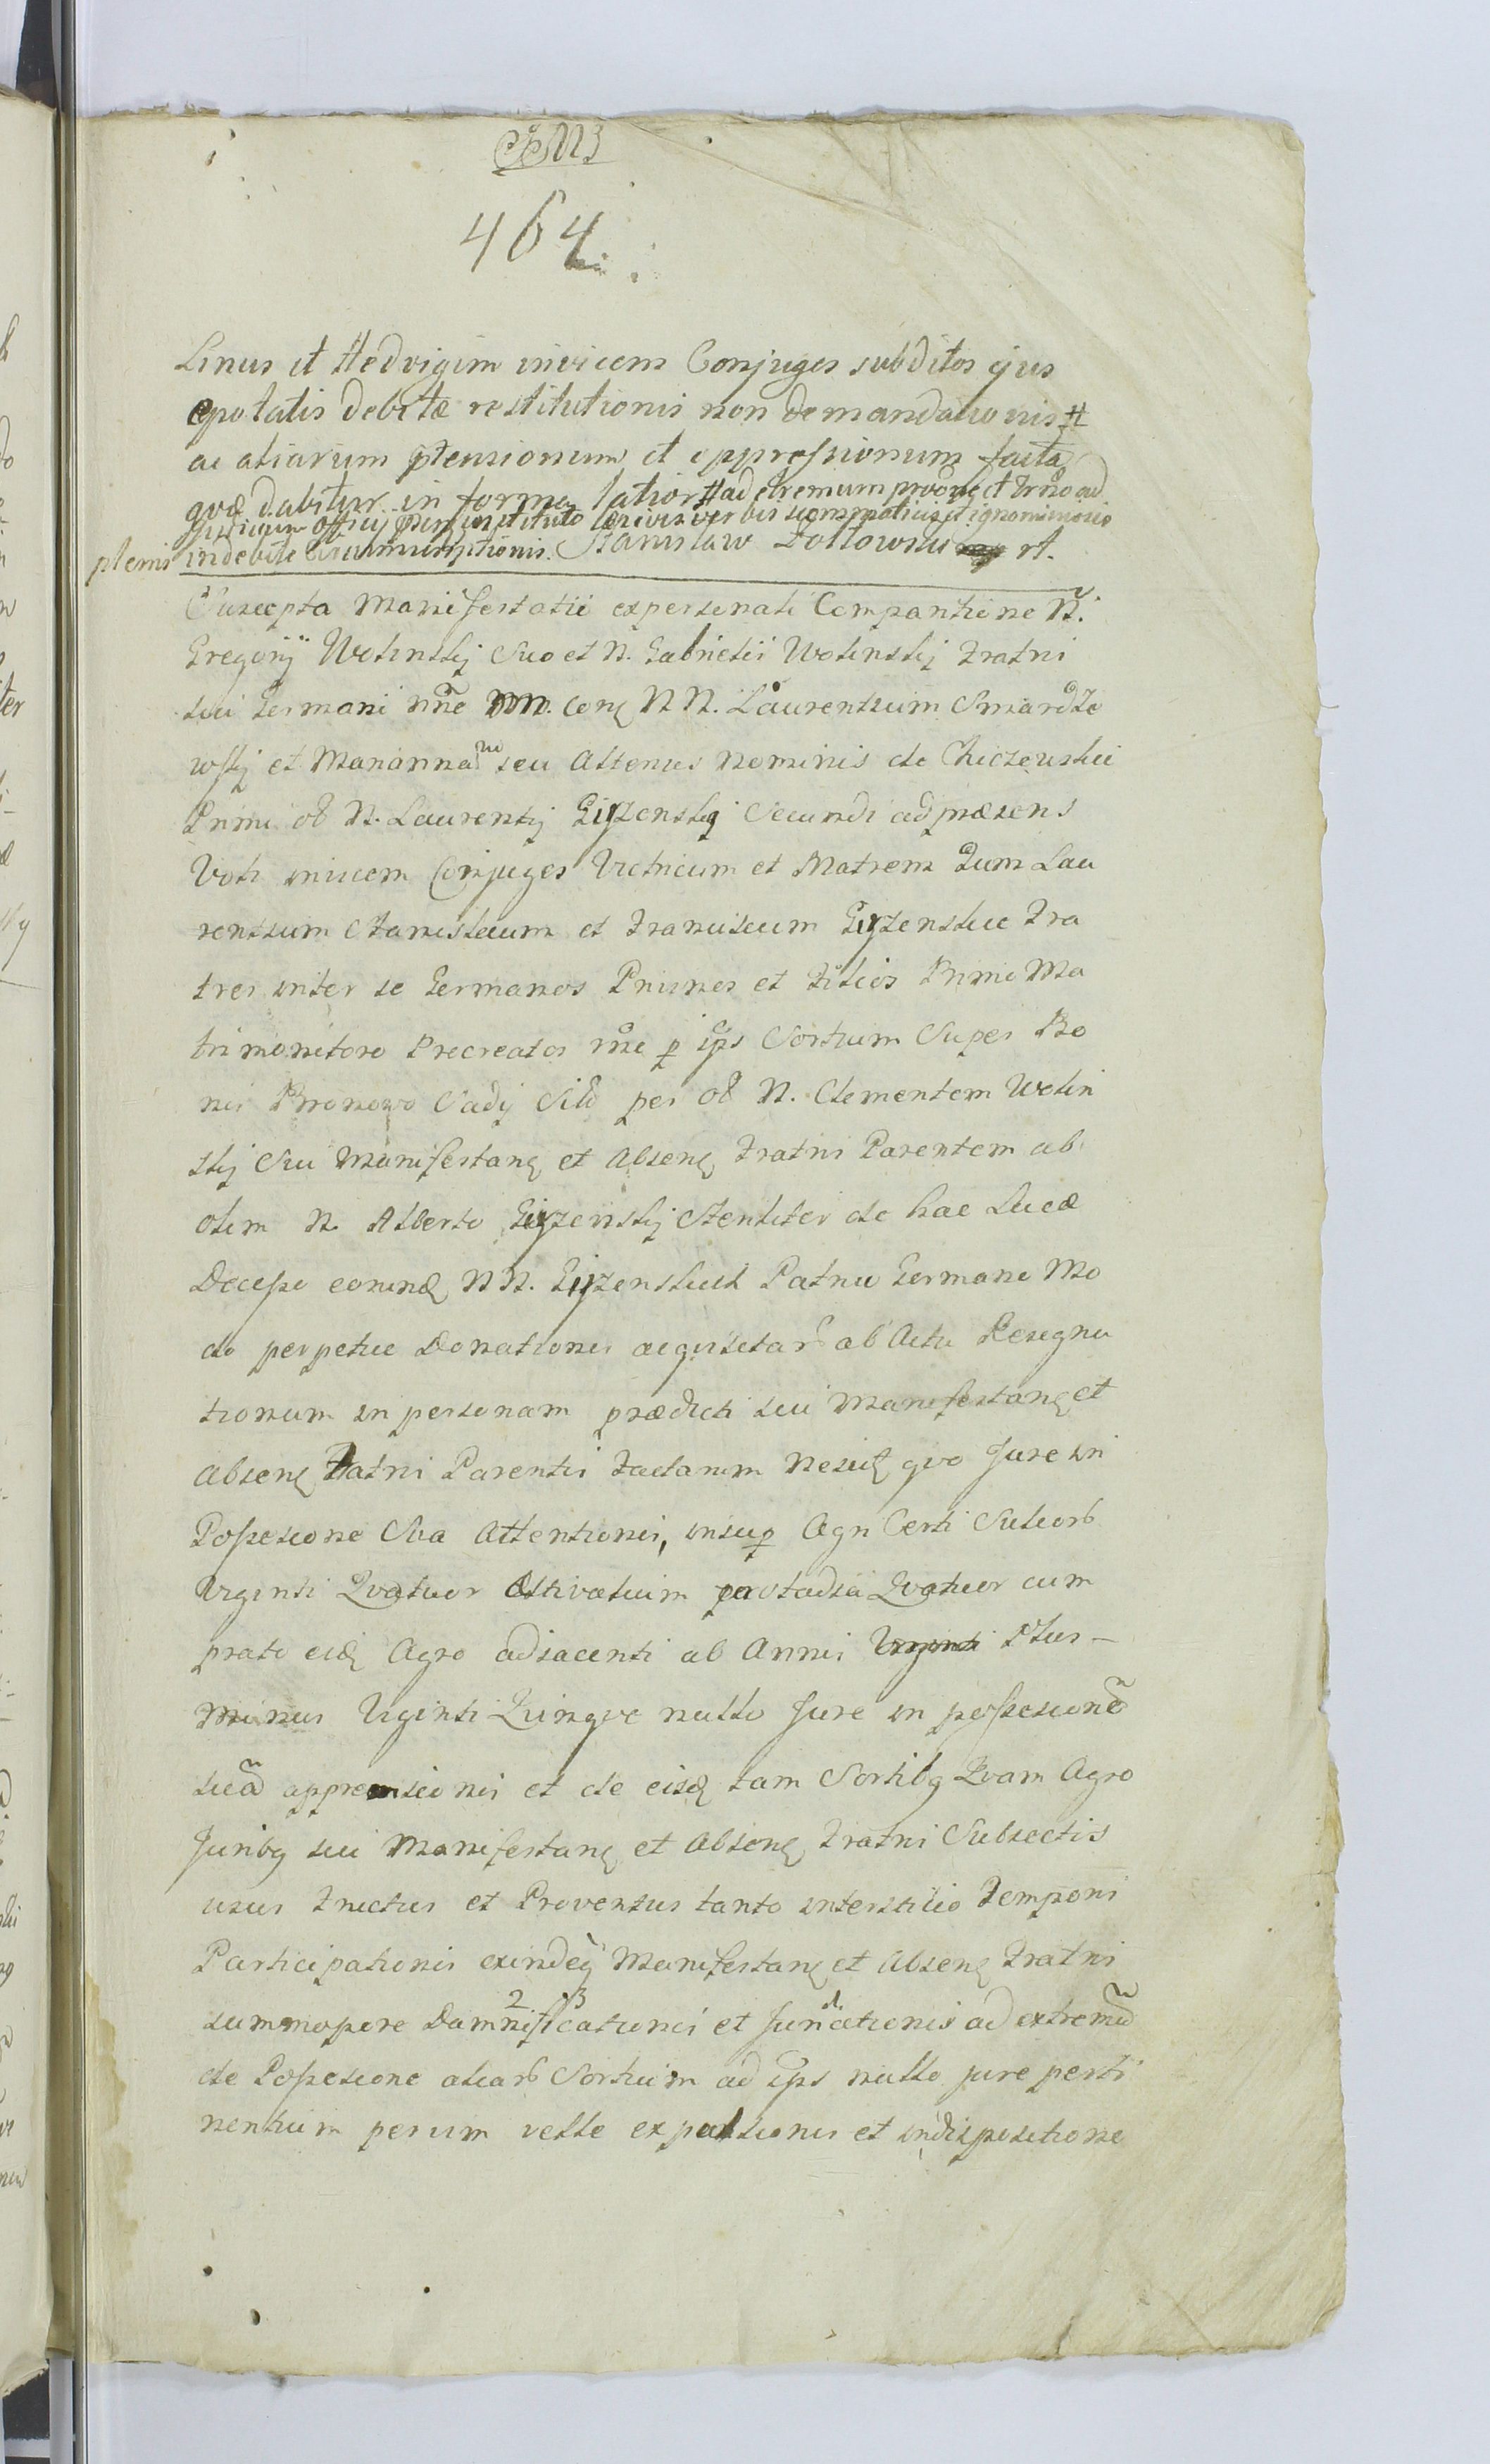 464
Linus et Hedvigim invicem Conjuges subditos ejus
epotatis debitæ restitutionis non demandationis #
ac aliarum ptensionum et oppressionum facta
qvæ dabitur in forma latiori # ad extremum
Judicium officij instituto verbis et ignominiosis
plenis indebite circumscriptionis. Stanislaw rt.
Suscepta Manifestatii expersonali Comparitione N.
Gregorij Wolinskij Suo et N. Gabrielis Wolinskij Fratri
sui Germani nñe con NN. Laurentium Smardze
wskij et Mariannam seu Alterius Nominis de Chiczewskie
Primi ol N. Laurentij Giżenskij Secundi ad præsens
Voti invicem Conjuges Vitricum et Matrem Tum Lau
rentium Stanislaum et Franciscum Giżenskie Fra
tres inter se Germanos Priunos et Filios Primi Ma
trimonii toro Procreatos rñe p ips Sortium Super Bo
nis Bronowo Sady Sitis per ol N. Clementem Wolin
skij Sui Manifestan et Absen Fratri Parentem ab
olim N. Alberto Giżenskij Steriliter de hac Luce
Decesso eorund NN. Giżenskich Patruo Germano Mo
do perpetue Donationis acquisitar ab Actu Resigna
tionum in personam prædicti sui Manifestan et
Absen Fratri Parentis Factarum Nescit qvo Jure in
Possesione Sua Attentionis, insup Agri Certi Sulcorb
Viginti Qvatuor Estivatuim per stadia Qvatuor cum
prato eid Agro adiacenti ab Annis Plus –
Minus Viginti Quinqve nullo Jure in possesionẽ
suã apprensionis et de eisd tam Sortibq Qvam Agro
Juribq sui Manifestan et Absen Fratri Subiectis
usus Fructus et Proventus tanto interstitio Temporis
Participationis exindeq Manifestan et Absen Fratri
summopere Damnificationis et Juriationis ad extremũ
de Possesione aliarb Sortium ad ips nullo jure perti
nentium perum velle expulsionis et indispositione